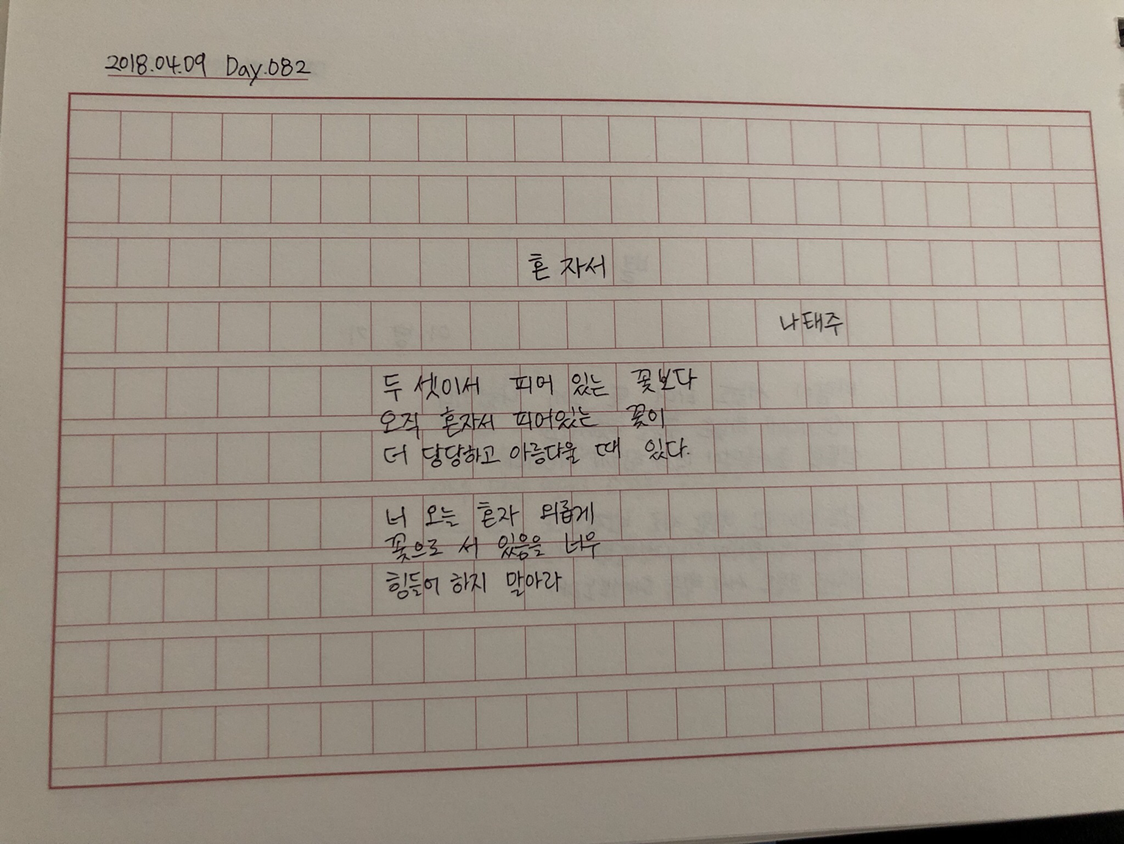 2018.04.09 Day.082
혼자서
나태주
두 셋이서 피어 있는 꽃보다
오직 혼자서 피어있는 꽃이
더 당당하고 아름다울 때 있다.
너 오늘 혼자 외롭게
꽃으로 서 있음을 너무
힘들어 하지 말아라